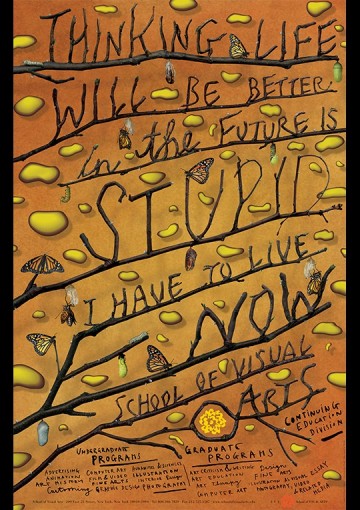 THINKING LIFE
WILL BE BETTER
in the FUTURE IS
STUPID
I HAVE TO LIVE
NOW
SCHOOL OF VISUAL
ARTS
CONTINUING
EDUCATION
DIVISION
UNDERGRADUATE
PROGRAMS
ADVERTISING
ANIMATION
ART HISTORY
Cartooning
COMPUTER ART
FILM & VIDEO
FINE ARTS
GRAPHIC DESIGN
ILLUSTRATION
Interior Design
PHOTOGRAPHY
GRADUATE
PROGRAMS
ART CRITICISM & WRITING
ART EDUCATION
Art Therapy
COMPUTER ART
Design
FINE ARTS
ILLUSTRATION AS VISUAL ESSAY
PHOTOGRAPHY, VIDEO &
RELATED MEDIA